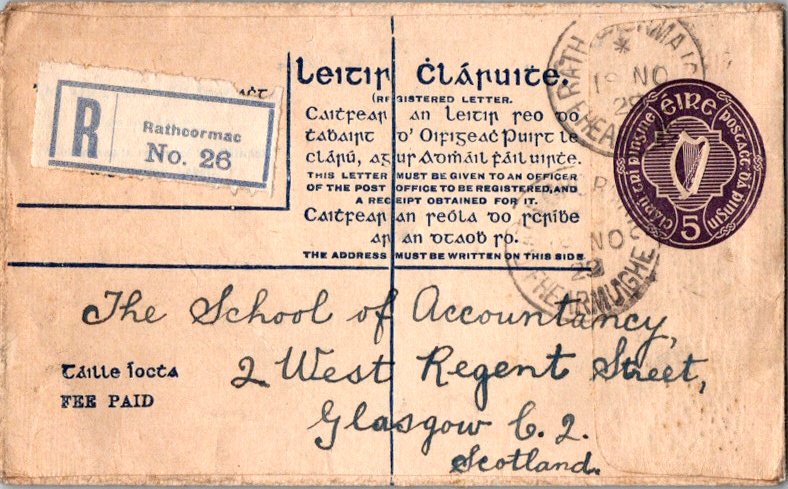 Leitir Cláruite.
(REGISTERED LETTER.
Caitfear an leitir seo do
tabairt d' Oifigeac Puirt le
clárú, agus Admáil fáil uirte.
THIS LETTER MUST BE GIVEN TO AN OFFICER
OF THE POST OFFICE TO BE REGISTERED, AND
A RECEIPT OBTAINED FOR IT.
Caitfear an seóla do scríbe
ar an dtaob so.
THE ADDRESS MUST BE WRITTEN ON THIS SIDE
R
Rathcormac
No. 26
RATH
19 NO
29
FHEARMUIGHE
NO
29
FHEARMUIGHE
ÉIRE
Clárú trí pingine
postage dá pingin
5
The School of Accountancy,
2 West Regent Street,
Glasgow C. 2.
Scotland.
Táille íocta
FEE PAID